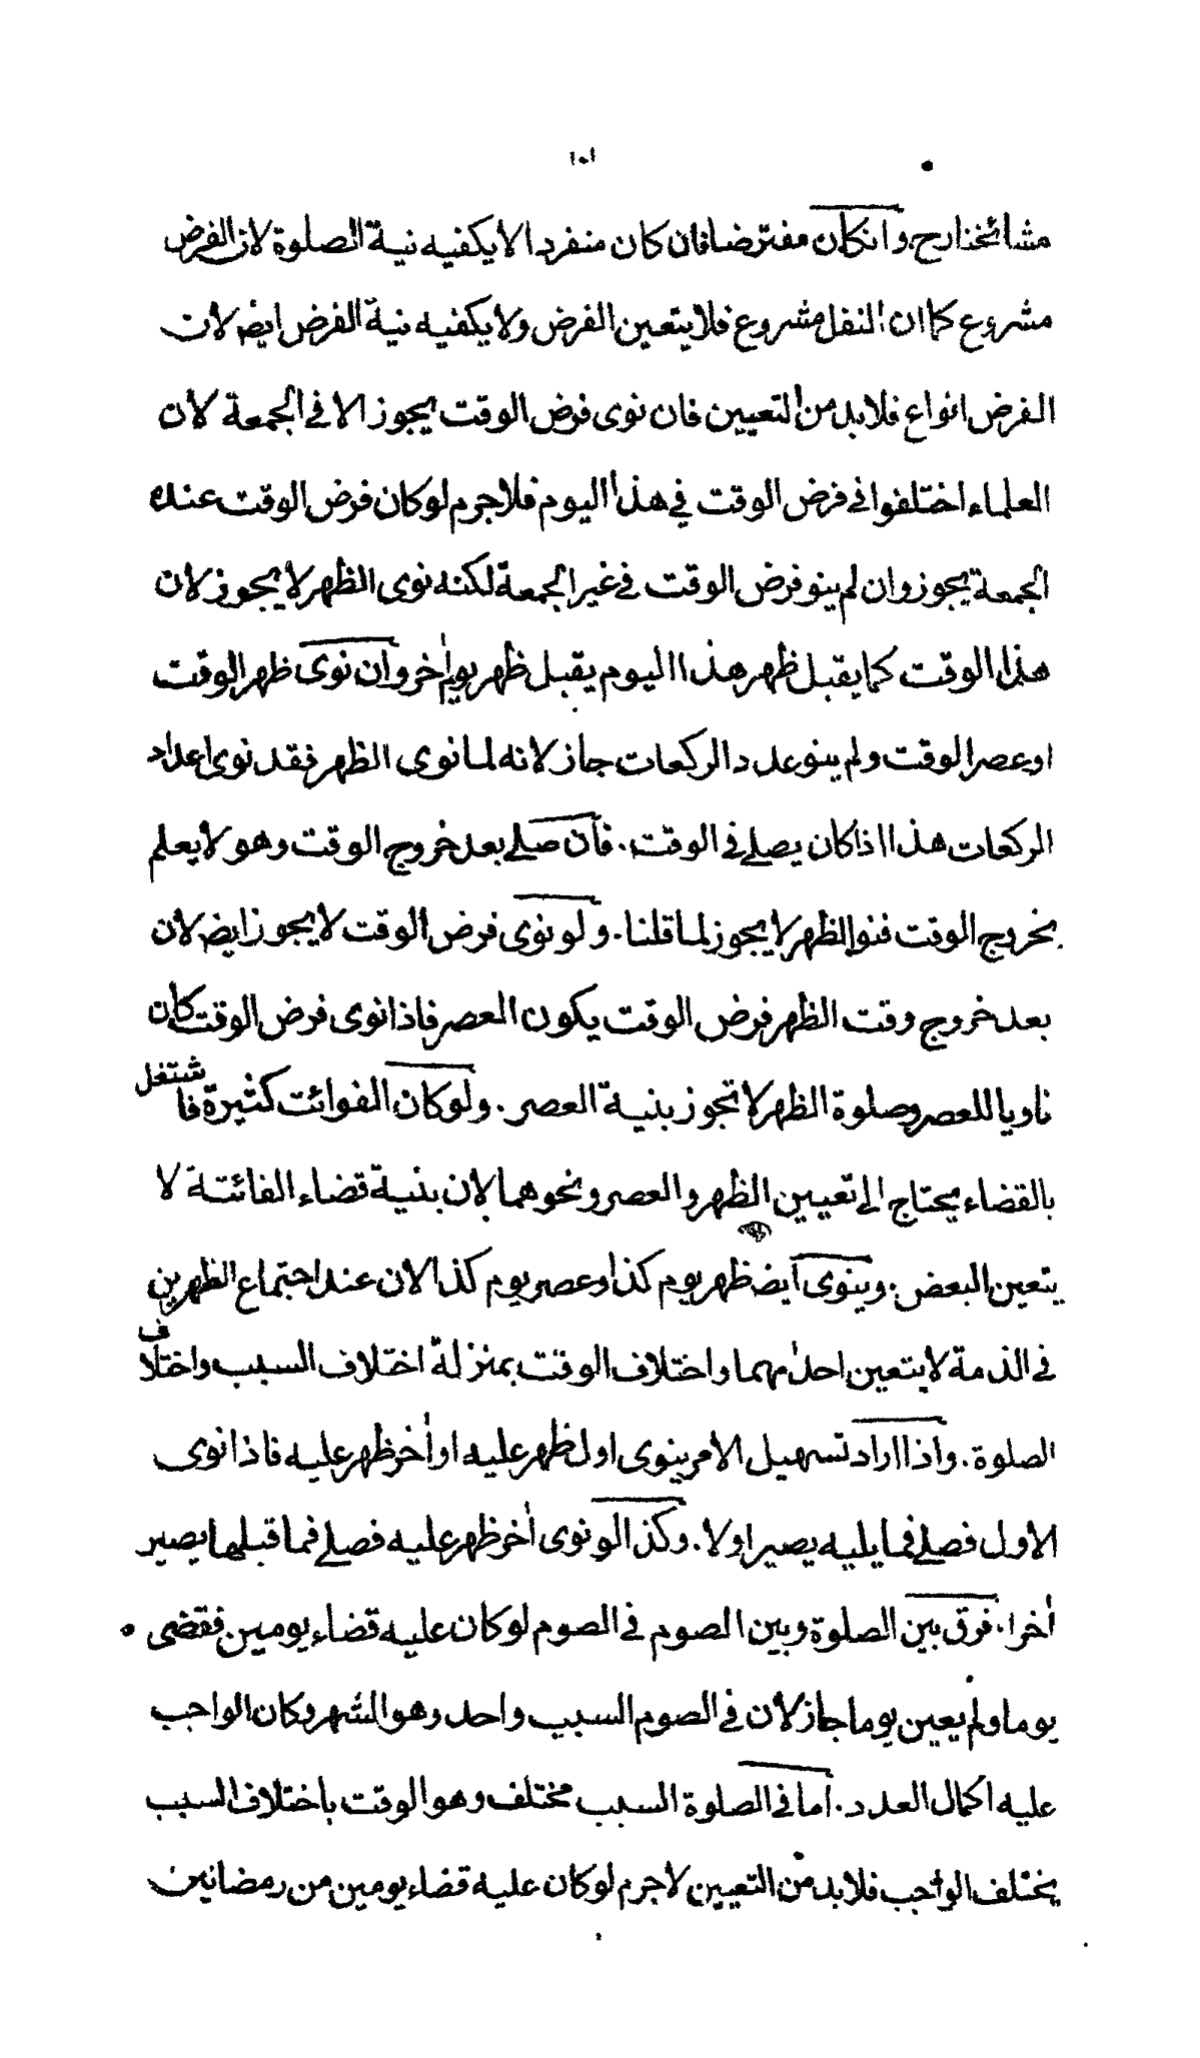 ١٠١
مشائخنا رح وانكان مفترضا فان كان منفردا لا يكفيه نية الصلوة لان الفرض
مشروع كما ان النفل مشروع فلا يتعين الفرض ولا يكفيه نية الفرض ايضا لان
الفرض انواع فلابد من التعيين فان نوى فرض الوقت يجوز الا في الجمعة لان
العلماء اختلفوا في فرض الوقت في هذا اليوم فلا جرم لو كان فرض الوقت عنده
الجمعة يجوز وان لم ينو فرض الوقت في غير الجمعة لكنه نوى الظهر لا يجوز لان
هذا الوقت كما يقبل ظهر هذا اليوم يقبل ظهر يوم اٰخر وان نوى ظهر الوقت
او عصر الوقت ولم ينو عدد الركعات جاز لانه لما نوى الظهر فقد نوى اعداد
الركعات هذا اذا كان يصلے في الوقت. فان صلے بعد خروج الوقت وهو لا يعلم
بخروج الوقت فنوا الظهر لا يجوز لما قلنا. ولو نوى فرض الوقت لا يجوز ايضا لان
بعد خروج وقت الظهر فرض الوقت يكون العصر فاذا نوى فرض الوقت كان
ناويا للعصر وصلوة الظهر لا تجوز بنية العصر. ولو كان الفوائت كثيرة فاشتغل
بالقضاء يحتاج الى تعيين الظهر والعصر ونحوهما لان بنية قضاء الفائتة لا
يتعين البعض. وينوى ايضا ظهر يوم كذا وعصر يوم كذا لان عند اجتماع الظهرين
في الذمة لا يتعين احدٰهما واختلاف الوقت بمنزلة اختلاف السبب واختلاف
الصلوة. واذا اراد تسهيل الامر ينوى اول ظهر عليه او اٰخر ظهر عليه فاذا نوى
الاول فصلے فما يليه يصير اولا. وكذا لو نوى اٰخر ظهر عليه فصلے فما قبلها يصير
اٰخرا. فرق بين الصلوة وبين الصوم في الصوم لو كان عليه قضاء يومين فقضى
يوما ولم يعين يوما جاز لان في الصوم السبب واحد وهو الشهر وكان الواجب
عليه اكمال العدد. اما في الصلوة السبب مختلف وهو الوقت باختلاف السبب
يختلف الواجب فلابد من التعيين لا جرم لو كان عليه قضاء يومين من رمضانين